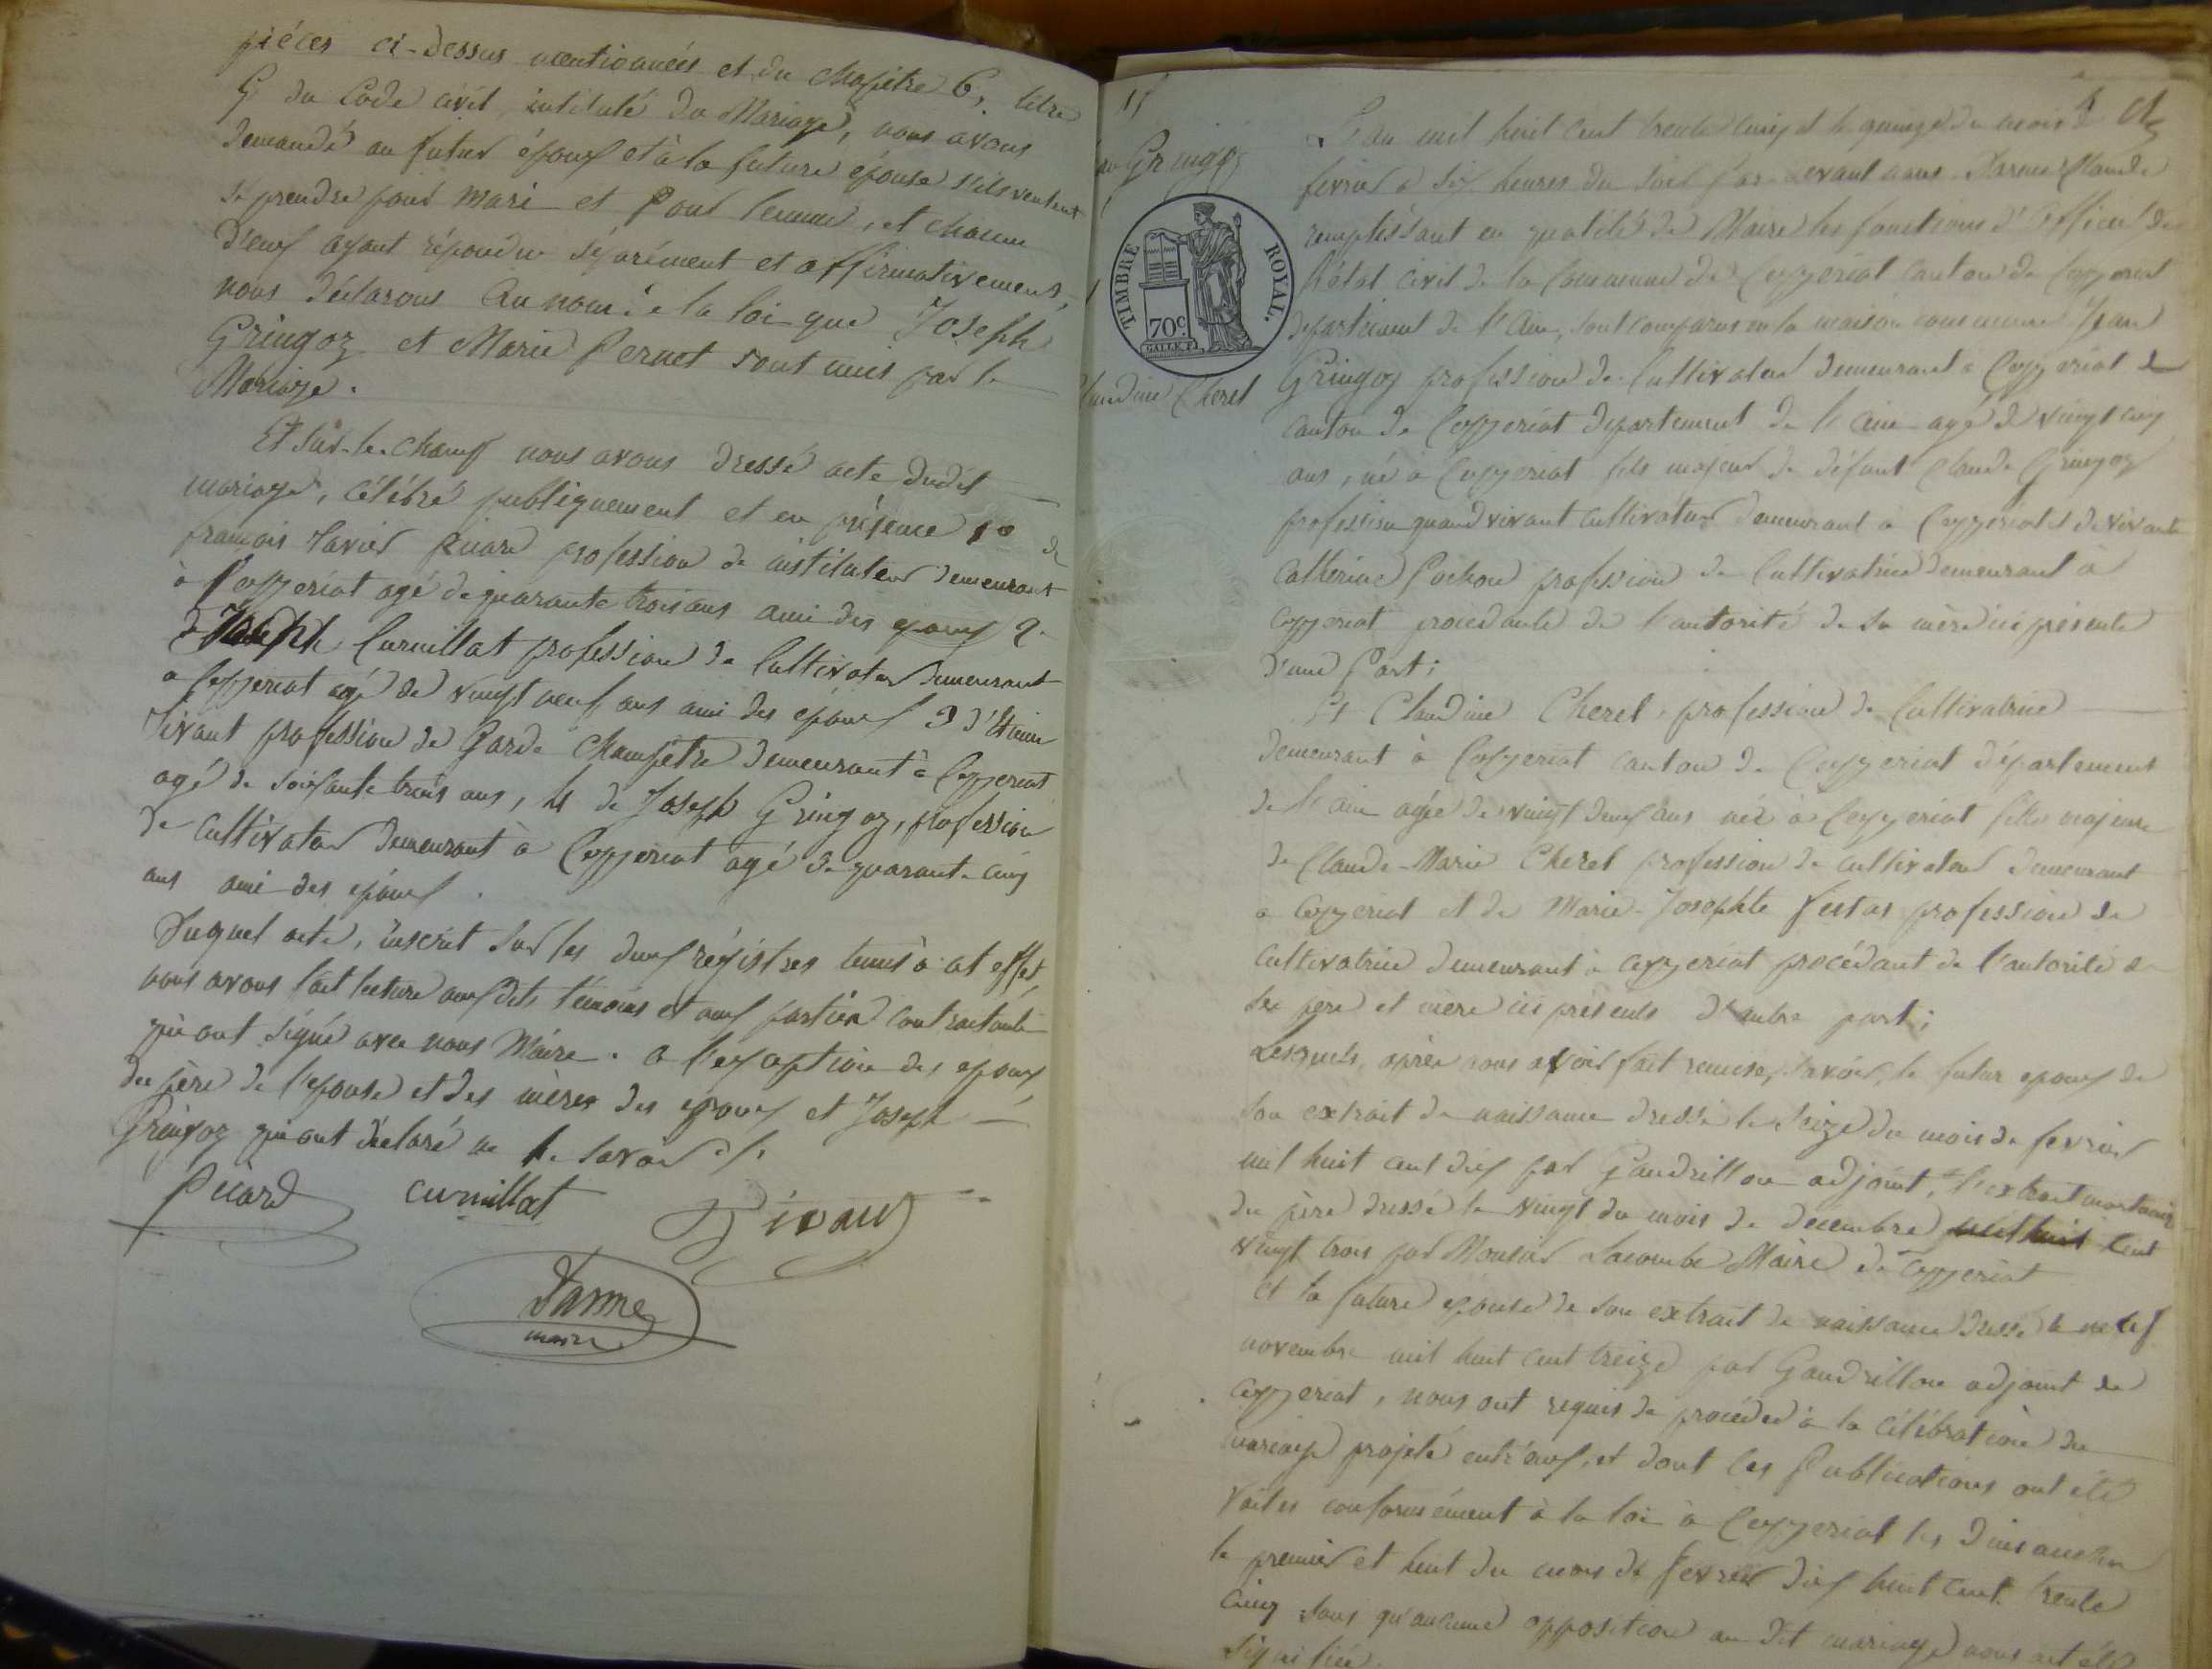 pièces ci-dessus mentionnées et du chapitre 6, titre
5 du Code civil, intitulé du Mariage, nous avons
demandé au futur époux et à la future épouse s'ils veulent
se prendre pour mari et pour femme, et chacun
d'eux ayant répondu séparément et affirmativement,
nous déclarons au nom de la loi que Joseph
Gringoz et Marie Pernet sont unis par le
Mariage.
Et sur-le-champ nous avons dressé acte dudit
mariage, célébré publiquement et en présence 1° de
françois Xavier Picard profession de instituteur demeurant
à Ceyzeriat agé de quarante trois ans ami des epoux 2°
de Joseph Curnillat profession de Cultivateur demeurant
a Ceyzeriat agé de vingt neuf ans ami des époux 3 d'Etienne
Vivant profession de Garde Champêtre demeurant à Ceyzeriat
agé de soixante trois ans, 4 de Joseph Gringoz, profession
de Cultivateur demeurant à Ceyzeriat agé de quarante cinq
ans ami des époux.
Duquel acte, inscrit sur les deux régistres tenus à cet effet,
nous avons fait lecture auxdits témoins et aux parties contractantes
qui ont signé avec nous Maire. a l'exception des epoux
du père de l'epouse et des mères des epoux et Joseph
Gringoz qui ont déclaré ne le savoir
Picard curnillat Vivant
Darme
maire
11
Gringoz
TIMBRE ROYAL.
70c
GALLE F.
Claudine Cherel
L'an mil huit cent trente cinq et le quinze du mois de
fevrier à six heures du soir Par-devant nous Darme Claude
remplissant en qualité de Maire les fonctions d'officier de
l'état civil de la Commune de Ceyzeriat canton de Ceyzeriat
département de l'Ain, sont comparus en la maison commune Jean
Gringoz profession de Cultivateur demeurant à Ceyzeriat
canton de Ceyzeriat departement de l'ain agé de vingt cinq
ans, né à Ceyzeriat fils majeur de défunt Claude Gringoz
profession quand vivant cultivateur demeurant à Ceyzeriat et de vivante
Catherine Pochon profession de Cultivatrice demeurant à
Ceyzeriat procedante de l'autorité de sa mère ici présente
d'une Part;
Et Claudine Cherel profession de Cultivatrice
demeurant à Ceyzeriat canton de Ceyzeriat département
de l'ain agée de vingt deux ans née à Ceyzeriat fille majeure
de Claude-Marie Cherel profession de cultivateur demeurant
à Ceyzeriat et de Marie-Josephte profession de
Cultivatrice demeurant à ceyzeriat procédant de l'autorité de
ses pere et mere ici présents d'autre part;
Lesquels, après nous avoir fait remise, savoir, le futur epoux de
son extrait de naissance dressé le seize du mois de fevrier
mil huit cent dix par Gaudrillon adjoint, l'extrait mortuaire
du père dressé le vingt du mois de decembre mil huit cent
vingt trois par Monsieur Lacombe Maire de Ceyzeriat
et la future epouse de son extrait de naissance dressé le neuf
novembre mil huit cent treize par Gaudrillon adjoint de
Ceyzeriat, nous ont requis de procéder à la célébration du
mariage projeté entr'eux, et dont les Publications ont été
faites conformément à la loi à Ceyzeriat les Dimanches
le premier et huit du mois de fevrier dix huit cent trente
cinq sans qu'aucune opposition au dit mariage nous ait été
signifiée.